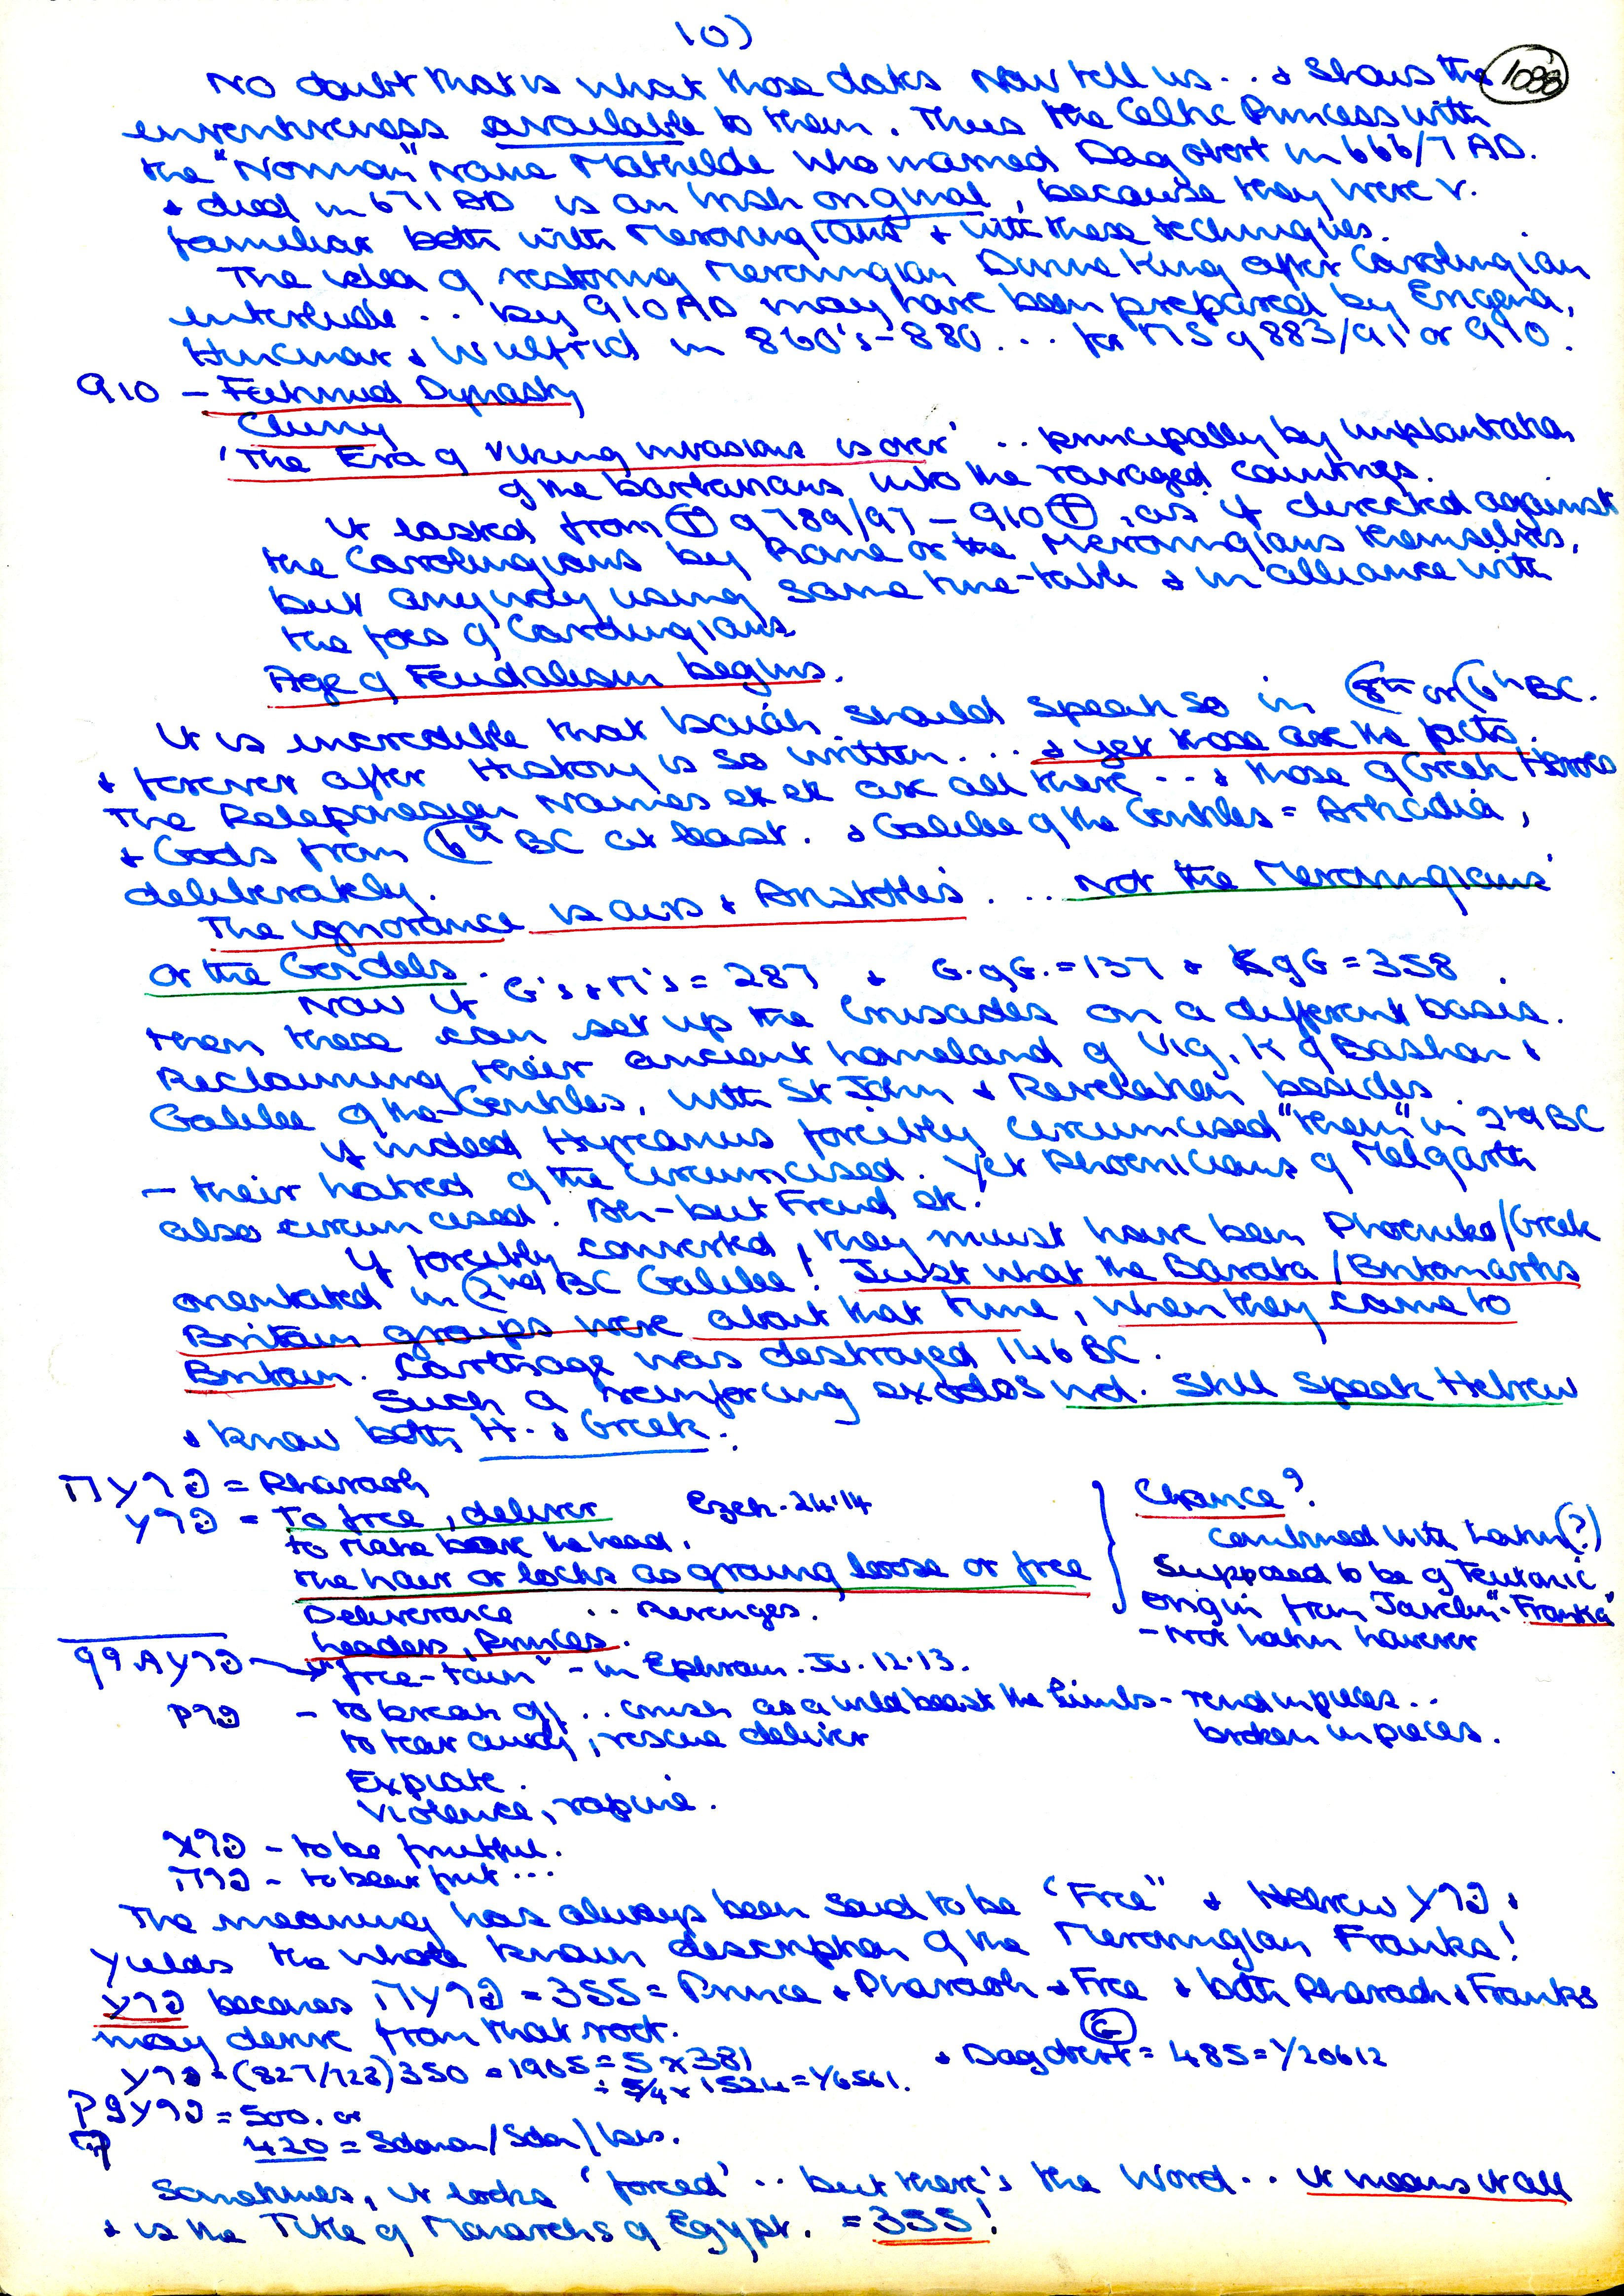 10)
1088
No doubt that is what those dates now tell us... & shows the
inventiveness available to them. Thus the Celtic Princess with
the "Norman" name Mathilde who married Dagobert in 666/7 AD.
& died in 671 AD is an Irish original, because they were v.
familiar both with Merovingians & with these techniques.
The idea of restoring Merovingian Divine King after Carolingian
interlude.. by 910 AD may have been prepared by Erigena,
Hincmar & Wulfrid in 860's-880... for MS of 883/91 or 910.
910 - Fatimid Dynasty
Cluny
'The Era of Viking invasions is over' .. principally by implantation
of the barbarians into the ravaged countries.
It lasted from ⊕ of 789/97 - 910 ⊕, as if directed against
the Carolingians by Rome or the Merovingians themselves,
but anyway using same time-table & in alliance with
the foes of Carolingians.
Age of Feudalism begins.
It is incredible that Isaiah should speak so in 8th or 6th BC.
& forever after History is so written... & yet those are the facts.
The Peloponesian Names et et are all there... & those of Greek Heroes
& Gods from 6th BC at least. & Galilee of the Gentiles = Arkadia,
deliberately.
The ignorance is ours & Aristotle's. ... Not the Merovingians'
or the Goidels.
Now if G's & M's = 287 & G.of G. = 137 & K of G = 358.
then these can set up the Crusades on a different basis.
Reclaiming their ancient homeland of Vig, K of Bashan &
Galilee of the Gentiles, with St John & Revelation besides.
If indeed Hyrcanus forcibly circumcised "them" in 2nd BC
- their hatred of the circumcised. Yet Phoenicians of Melqarth
also circumcised! Ah - but Freud et.
If forcibly converted, they must have been Phoeniko/Greek
orientated in 2nd BC Galilee! Just what the Barata/Britomartis
Britain groups were about that time, when they came to
Britain. Carthage was destroyed 146 BC.
Such a reinforcing exodus wd. still speak Hebrew
& know both H. & Greek.
פרעה = Pharaoh
פרע = To free, deliver Ezek. 24.14
to make bare the head.
the hair or locks as growing loose or free
Deliverance .. Revenges.
Leaders, Princes.
"free-town" - in Ephraim. Ju. 12.13.
פרק - to break off .. crush as a wild beast the limbs - rend in pieces..
to tear away, rescue deliver broken in pieces.
Expiate.
Violence, rapine.
Chance?
Combined with Latin (?)
Supposed to be of Teutonic
origin from Javelin "Franka"
- not Latin however
פרא - to be fruitful.
פרה - to bear fruit...
The meaning has always been said to be 'Free" & Hebrew פרע &
yields the whole known description of the Merovingian Franks!
פרע becomes פרעה = 355 = Prince & Pharaoh & Free & both Pharaoh & Franks
may derive from that root.
פרע = (827/728) 350 = 1905 = 5 x 381 & Dagobert = 485 = 1/20612
÷ 5/4 x 1524 = 1/6561.
= 500. or
420 = Solomon/Solar/
Sometimes, it looks 'forced' .. but there's the Word.. it means it all
& is the Title of Monarchs of Egypt. = 355!